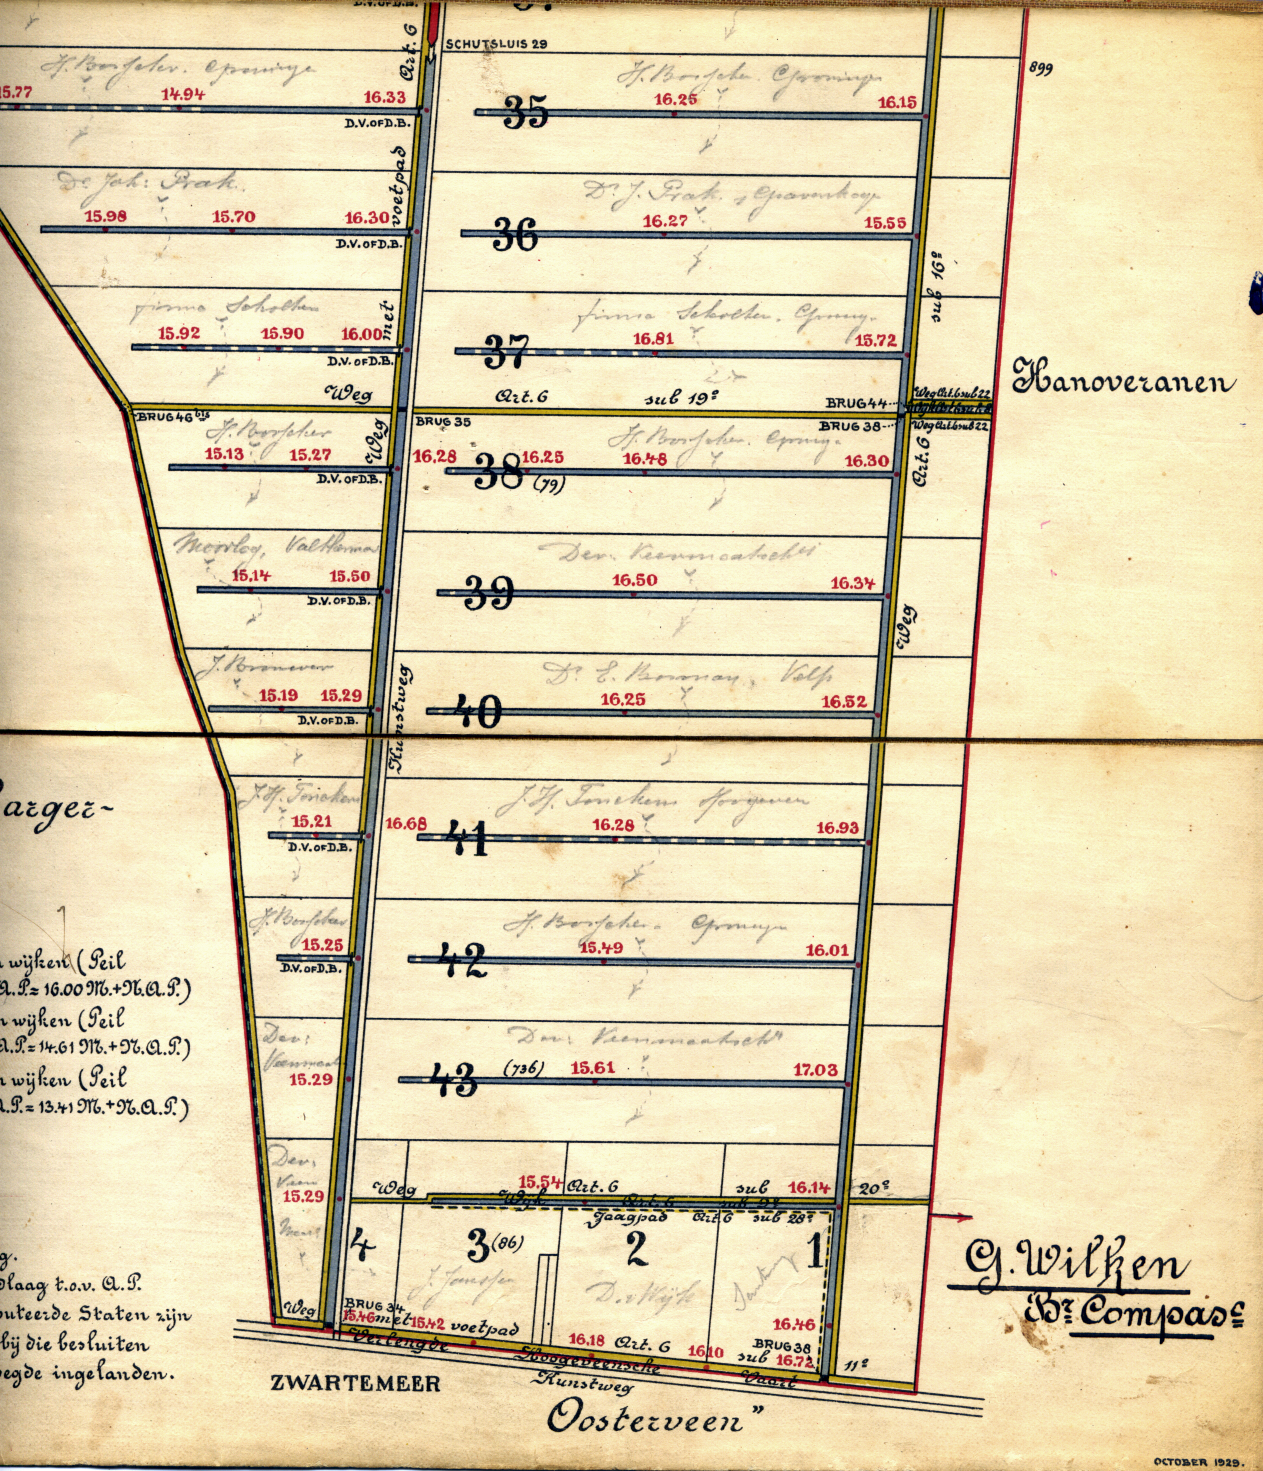 D.V.OFD.B.
Art. 6
SCHUTSLUIS 29
899
H. Borscher. Groninge
H. Borscher. Groninge
15.77 14.94 16.33
D.V.OFD.B.
35 16.25 16.15
voetpad
Dr Joh: Prak.
Dr. J. Prak, s Gravenhage
15.98 15.70 16.30
D.V.OFD.B.
36 16.27 15.55
sub 16e
met
firma Scholten
firma Scholten. Groning.
15.92 15.90 16.00
D.V.OFD.B.
37 16.81 15.72
Hanoveranen
Weg Art. 6 sub 19e
BRUG 46bis
BRUG 35
BRUG 44
BRUG 38
Weg Art.6 sub 22
Weg Art.6 sub 22
Weg
Art. 6
H. Borscher
H. Borscher. Groning.
15.13 15.27
D.V.OFD.B.
16.28 38 16.25 (79) 16.48 16.30
Moorlog, Valthermo
Dev. Veenmaatschij
15.14 15.50
D.V.OFD.B.
39 16.50 16.34
Weg
J. Bronever
Dr. E. Bouman, Velp
15.19 15.29
D.V.OFD.B.
40 16.25 16.52
Kunstweg
J.H. Tonckens
J.H. Tonckens Hoogeveen
15.21
D.V.OFD.B.
16.68 41 16.28 16.93
H. Borscher
H. Borscher. Groninge
15.25
D.V.OFD.B.
42 15.49 16.01
Dev:
Veenmaat
Dev: Veenmaatsch
15.29
43 (736) 15.61 17.03
Dev.
Veen
Maat
15.29
Weg 15.54 Art. 6 sub 16.14 20e
Wijk Art. 6 sub 9e
Jaagpad Art. 6 sub 28e
4 3 (86) 2 1
J. Janssen
D. v Wijk
Weg
BRUG 34
15.46 met 15.42 voetpad
16.18 Art. 6 16.10 sub 11e
16.46
BRUG 38
16.72
Verlengde Hoogeveensche Vaart
Kunstweg
ZWARTEMEER
Oosterveen"
G. Wilken
Br. Compasc
Barger-
n wijken (Peil
A.P.= 16.00 M.+N.A.P.)
n wijken (Peil
A.P.= 14.61 M.+N.A.P.)
n wijken (Peil
A.P.= 13.41 M.+N.A.P.)
g.
slaag t.o.v. A.P.
puteerde Staten zijn
bij die besluiten
egde ingelanden.
OCTOBER 1929.